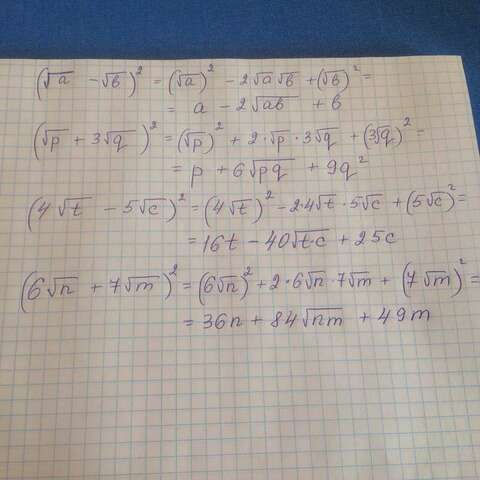 (√a - √b)² = (√a)² - 2√a√b + (√b)² =
= a - 2√ab + b
(√p + 3√q)² = (√p)² + 2·√p·3√q + (3√q)² =
= p + 6√pq + 9q²
(4√t - 5√c)² = (4√t)² - 2·4√t·5√c + (5√c)² =
= 16t - 40√t·c + 25c
(6√n + 7√m)² = (6√n)² + 2·6√n·7√m + (7√m)² =
= 36n + 84√nm + 49m